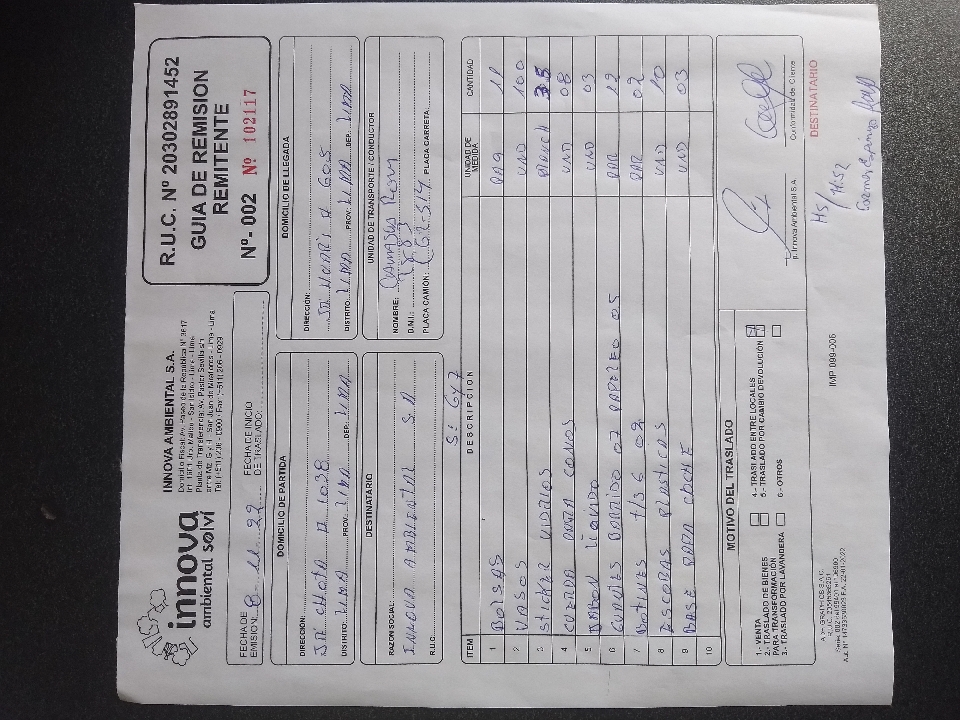 innova
ambiental solví
INNOVA AMBIENTAL S.A.
Domicilio Fiscal: Av. Paseo de la República N° 3617
Int. 1601 - San Isidro - Lima - Lima
Planta de Transferencia: Av. Pastor Sevilla s/n
San Juan de Miraflores - Lima - Lima
R.U.C. Nº 20302891452
GUIA DE REMISION
REMITENTE
Nº- 002 Nº 102117
FECHA DE EMISION: 8 - 11 - 22
FECHA DE INICIO DE TRASLADO:
DOMICILIO DE PARTIDA
DIRECCIÓN:
JR CHOTA # 1038
DISTRITO: LIMA PROV.: LIMA DEP.: LIMA
DOMICILIO DE LLEGADA
DIRECCIÓN:
605
DISTRITO: LIMA PROV.: LIMA DEP.: LIMA
DESTINATARIO
RAZON SOCIAL:
INNOVA AMBIENTAL S.A
R.U.C.
UNIDAD DE TRANSPORTE / CONDUCTOR
NOMBRE:
D.N.I.:
PLACA CAMIÓN: PLACA CARRETA:
S: 647
ITEM DESCRIPCION UNIDAD DE MEDIDA CANTIDAD
1 BOLSAS PAQ 11
2 VASOS UND 100
3 STICKER VIDRIOS 35
4 CUERDA PARA CONOS UND 08
5 JABON LIQUIDO UND 03
6 GUANTES BARRIDO 07 PAPELEO 05 PAR 12
7 BOTINES T/36 02 PAR 02
8 ESCOBAS PLASTICAS UND 10
9 BASE PARA COCHE UND 03
10
MOTIVO DEL TRASLADO
1.- VENTA
2.- TRASLADO DE BIENES PARA TRANSFORMACIÓN
3.- TRASLADO POR LAVANDERA
4.- TRASLADO ENTRE LOCALES
5.- TRASLADO POR CAMBIO DEVOLUCIÓN
6.- OTROS
p. Innova Ambiental S.A.
Conformidad de Cliente
IMP 099-006
DESTINATARIO